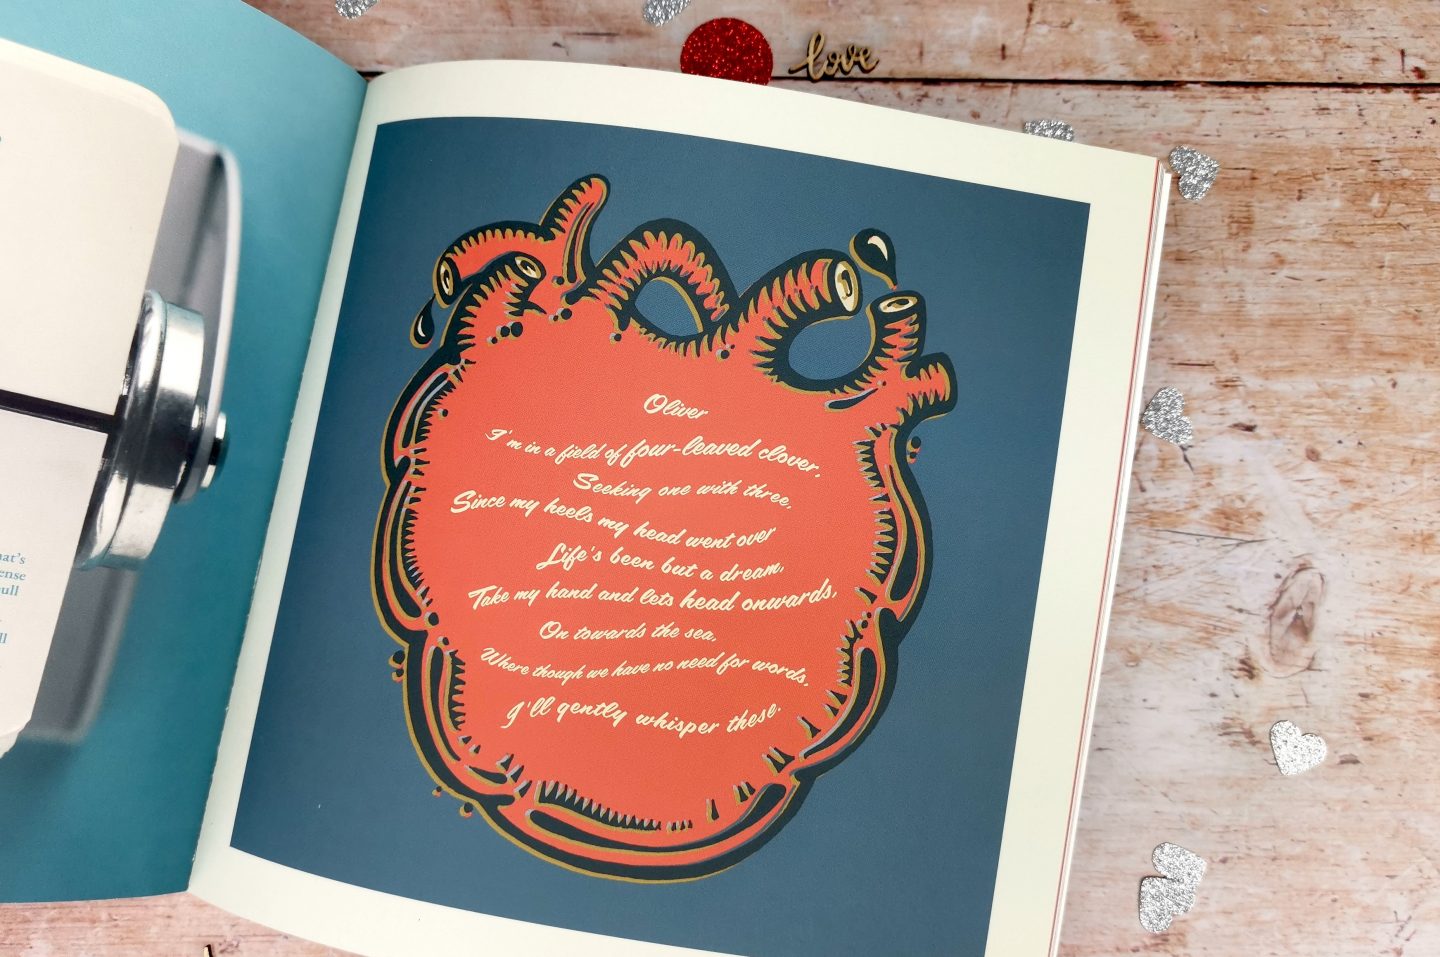 love
at's
ense
ull
ll
Oliver
I'm in a field of four-leaved clover,
Seeking one with three,
Since my heels my head went over
Life's been but a dream,
Take my hand and lets head onwards,
On towards the sea,
Where though we have no need for words,
I'll gently whisper these.